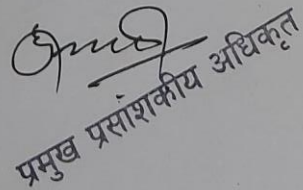 प्रमुख प्रसांशकीय अधिकृत